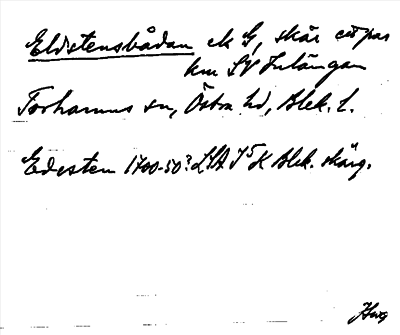 Eldstensbådan ek G, skär ett par
km SV Inlängan
Torhamns sn, Östra hd, Blek. l.
Edesten 1700-50? LSA I5 K Blek. skärg.